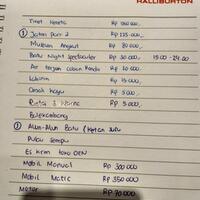 HALLIBURTON
Tiket Kereta Rp 560 000,-
① Jatim Park 2 Rp 125.000,-
Museum Angkut Rp 80 000,-
Batu Night Spectacular Rp 30.000,- 15.00 - 24.00
Air terjun coban Rondo Rp 10.000,-
Labirin Rp 15.000,-
Omah kayu Rp 5.000,-
Rp 5.000,-
② Alun-Alun Batu (Ketan
Pulau Sempu
Es krim toko OEN
Mobil Manual Rp 300000
Mobil Matic Rp 350000
Motor Rp 70000